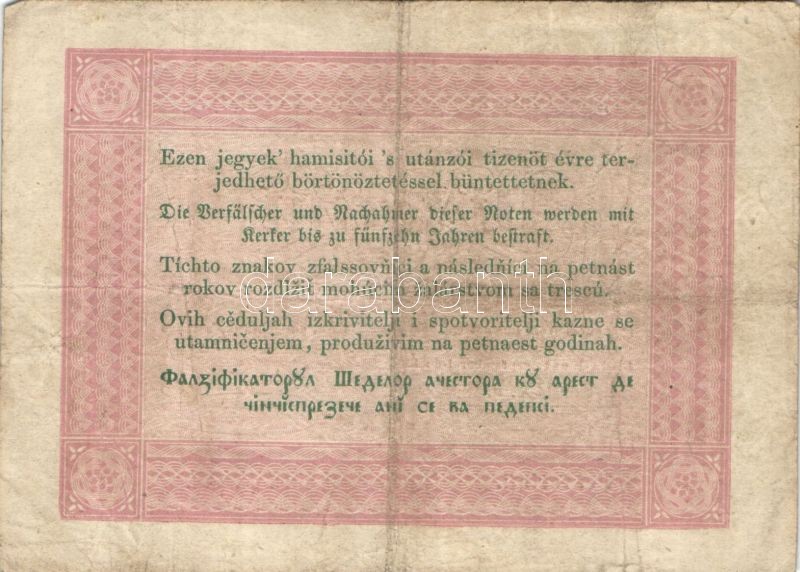 Ezen jegyek' hamisitói 's utánzói tizenöt évre ter-
jedhető börtönöztetéssel büntettetnek.
Die Verfälscher und Nachahmer dieser Noten werden mit
Kerker bis zu fünfzehn Jahren bestraft.
Tíchto znakov zfalssovňíci a následňíci na petnást
rokov rozdížiť mohúcím žalárstrom sa trescú.
darabanth
Ovih cěduljah izkrivitelji i spotvoritelji kazne se
utamničenjem, produživim na petnaest godinah.
Фалзіфікаторꙋл Шеделор ачестора кꙋ арест де
чінчіспрезече ані се ва педепсі.